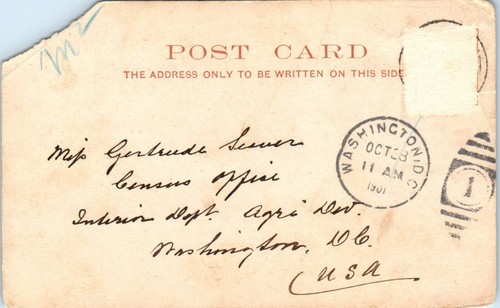 POST CARD
THE ADDRESS ONLY TO BE WRITTEN ON THIS SIDE
Miss Gertrude
Census Office
Interior Dept. Agri Div.
Washington, D.C.
USA
WASHINGTON, D.C.
OCT 28
11 AM
1901
1